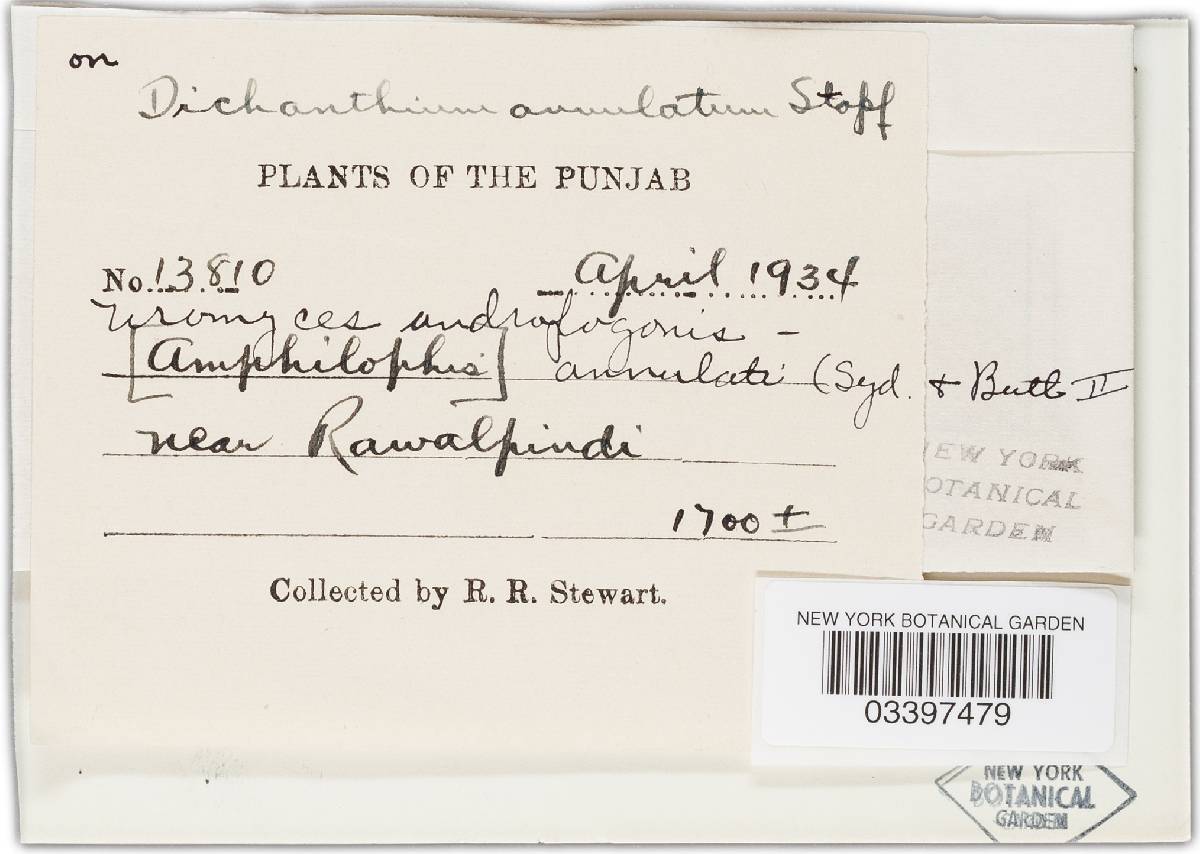 on
Dichanthium annulatum Stapf
PLANTS OF THE PUNJAB
No. 13810 April 1934
Uromyces andropogonis -
[Amphilophis] annulati (Syd. & Butl II
near Rawalpindi
1700 ±
Collected by R. R. Stewart.
NEW YORK
BOTANICAL
GARDEN
NEW YORK BOTANICAL GARDEN
03397479
NEW YORK
BOTANICAL
GARDEN